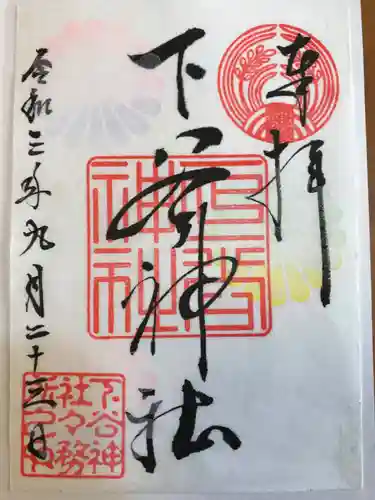 奉拝
下谷神社
令和三年九月二十三日
下谷神社
下谷神社々務所之印